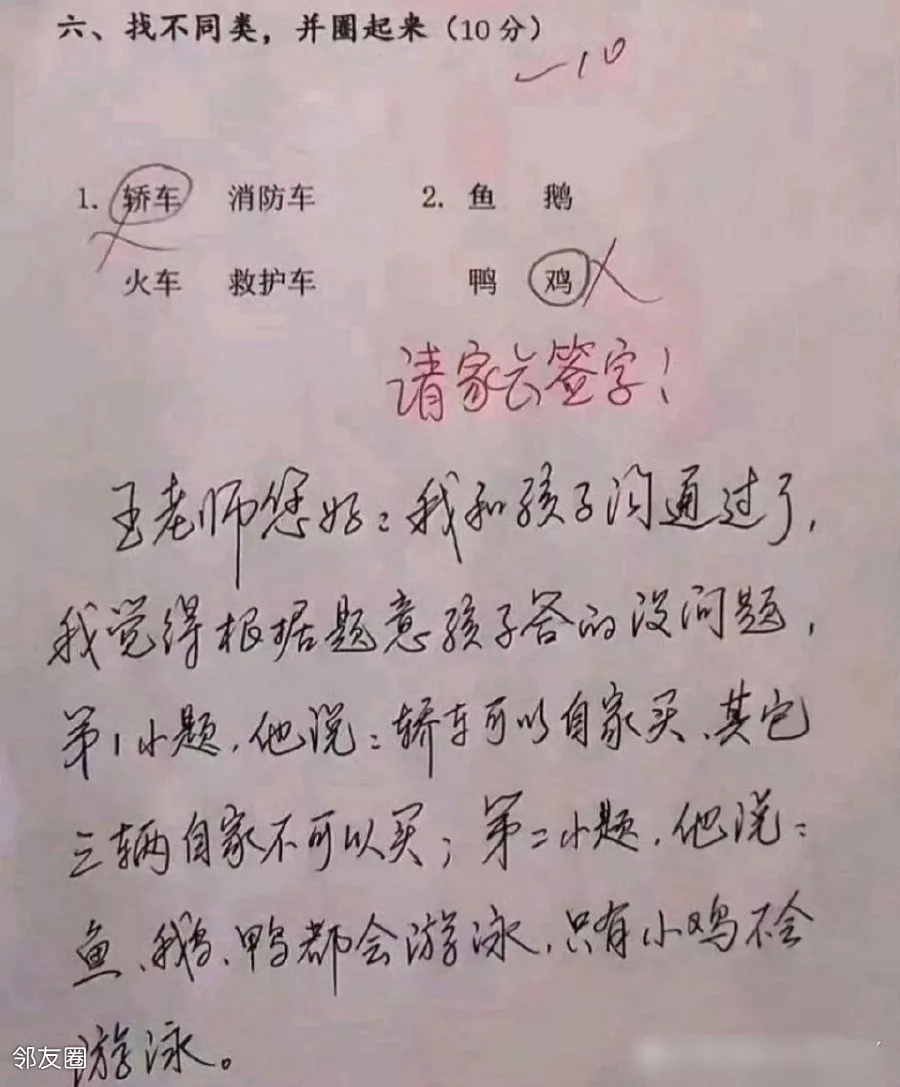 六、找不同类，并圈起来（10分）
-10
1. 轿车 消防车 2. 鱼 鹅
火车 救护车 鸭 鸡
请家长签字！
王老师您好：我和孩子沟通过了，
我觉得根据题意孩子答的没问题，
第1小题，他说：轿车可以自家买、其它
三辆自家不可以买；第二小题，他说：
鱼、鹅、鸭都会游泳，只有小鸡不会
游泳。
邻友圈